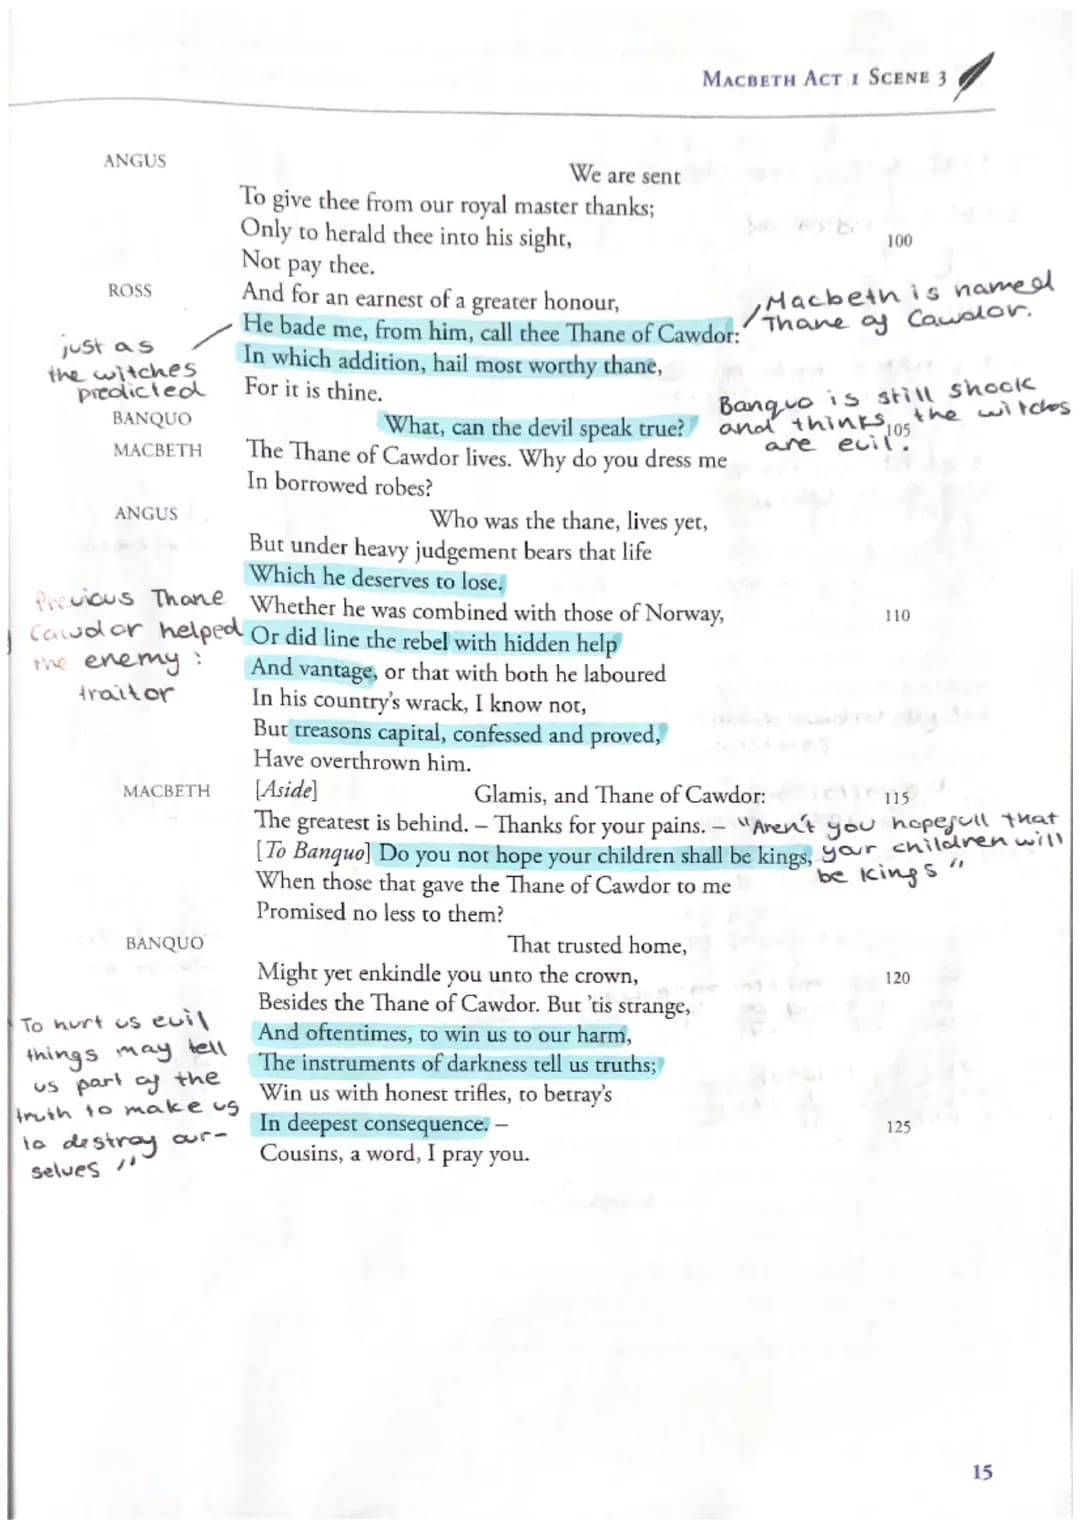 MACBETH ACT 1 SCENE 3
ANGUS
We are sent
To give thee from our royal master thanks;
Only to herald thee into his sight,
100
Not pay thee.
ROSS
And for an earnest of a greater honour,
He bade me, from him, call thee Thane of Cawdor:
Macbeth is named
Thane of Cawdor.
just as
the witches
predicted
In which addition, hail most worthy thane,
For it is thine.
BANQUO
What, can the devil speak true?
105
Banquo is still shock
and thinks, the witches
are evil.
MACBETH
The Thane of Cawdor lives. Why do you dress me
In borrowed robes?
ANGUS
Who was the thane, lives yet,
But under heavy judgement bears that life
Which he deserves to lose.
Whether he was combined with those of Norway,
110
Previous Thane
Cawdor helped
the enemy :
traitor
Or did line the rebel with hidden help
And vantage, or that with both he laboured
In his country's wrack, I know not,
But treasons capital, confessed and proved,
Have overthrown him.
MACBETH
[Aside] Glamis, and Thane of Cawdor:
115
The greatest is behind. – Thanks for your pains. –
[To Banquo] Do you not hope your children shall be kings,
"Aren't you hopefull that
your children will
be kings"
When those that gave the Thane of Cawdor to me
Promised no less to them?
BANQUO
That trusted home,
Might yet enkindle you unto the crown,
120
Besides the Thane of Cawdor. But 'tis strange,
And oftentimes, to win us to our harm,
The instruments of darkness tell us truths;
Win us with honest trifles, to betray's
In deepest consequence. –
125
Cousins, a word, I pray you.
To hurt us evil
things may tell
us part of the
truth to make us
to destroy our-
selves "
15